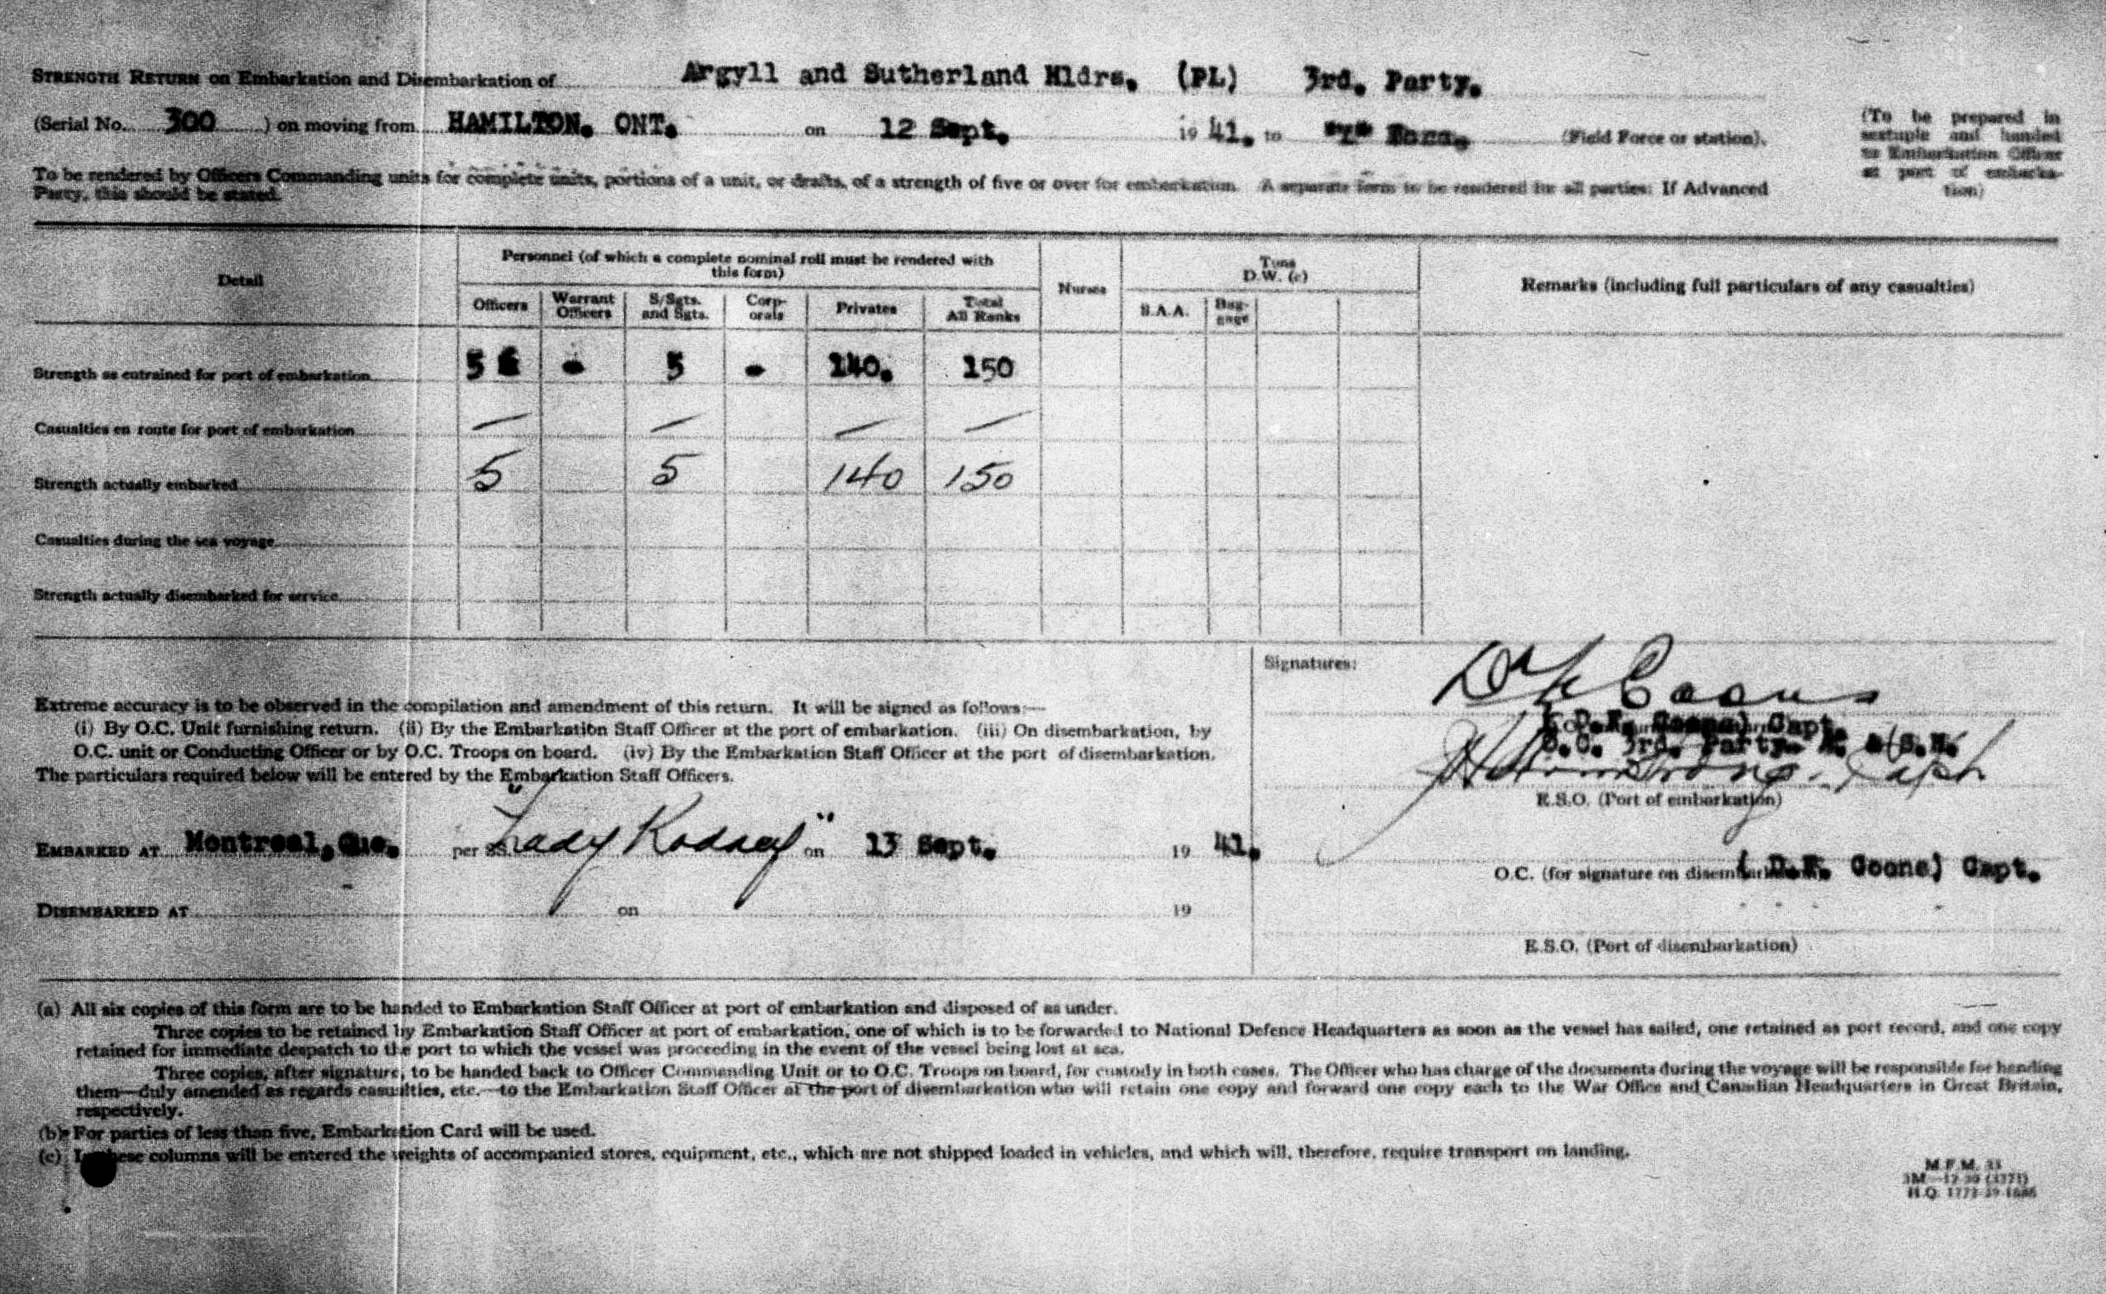 STRENGTH RETURN on Embarkation and Disembarkation of Argyll and Sutherland Hldrs. (PL) 3rd. Party.
(Serial No. 300 ) on moving from HAMILTON. ONT. on 12 Sept. 19 41. to (Field Force or station).
(To be prepared in sextuple and handed to Embarkation Officer at port of embarkation)
To be rendered by Officers Commanding units for complete units, portions of a unit, or drafts, of a strength of five or over for embarkation. A separate form to be rendered for all parties: If Advanced
Party, this should be stated.
Detail
Personnel (of which a complete nominal roll must be rendered with
this form)
Nurses
Tons
D.W. (c)
Remarks (including full particulars of any casualties)
Officers Warrant Officers S/Sgts. and Sgts. Corp-orals Privates Total All Ranks S.A.A. Bag-gage
Strength as entrained for port of embarkation 5 - 5 - 140. 150
Casualties en route for port of embarkation — — — —
Strength actually embarked 5 5 140 150
Casualties during the sea voyage
Strength actually disembarked for service
Signatures:
Extreme accuracy is to be observed in the compilation and amendment of this return. It will be signed as follows:—
(i) By O.C. Unit furnishing return. (ii) By the Embarkation Staff Officer at the port of embarkation. (iii) On disembarkation, by
O.C. unit or Conducting Officer or by O.C. Troops on board. (iv) By the Embarkation Staff Officer at the port of disembarkation.
The particulars required below will be entered by the Embarkation Staff Officers.
Coons
Coons) Capt.
O.C. 3rd. Party. A. & S.H.
Armstrong. Capt
E.S.O. (Port of embarkation)
EMBARKED AT Montreal, Que. per SS. "Lady Rodney" on 13 Sept. 19 41.
O.C. (for signature on Coons) Capt.
DISEMBARKED AT on 19
E.S.O. (Port of disembarkation)
(a) All six copies of this form are to be handed to Embarkation Staff Officer at port of embarkation and disposed of as under.
Three copies to be retained by Embarkation Staff Officer at port of embarkation, one of which is to be forwarded to National Defence Headquarters as soon as the vessel has sailed, one retained as port record, and one copy
retained for immediate despatch to the port to which the vessel was proceeding in the event of the vessel being lost at sea.
Three copies, after signature, to be handed back to Officer Commanding Unit or to O.C. Troops on board, for custody in both cases. The Officer who has charge of the documents during the voyage will be responsible for handing
them—duly amended as regards casualties, etc.—to the Embarkation Staff Officer at the port of disembarkation who will retain one copy and forward one copy each to the War Office and Canadian Headquarters in Great Britain,
respectively.
(b) For parties of less than five, Embarkation Card will be used.
(c) columns will be entered the weights of accompanied stores, equipment, etc., which are not shipped loaded in vehicles, and which will, therefore, require transport on landing.
M.F.M.
H.Q.